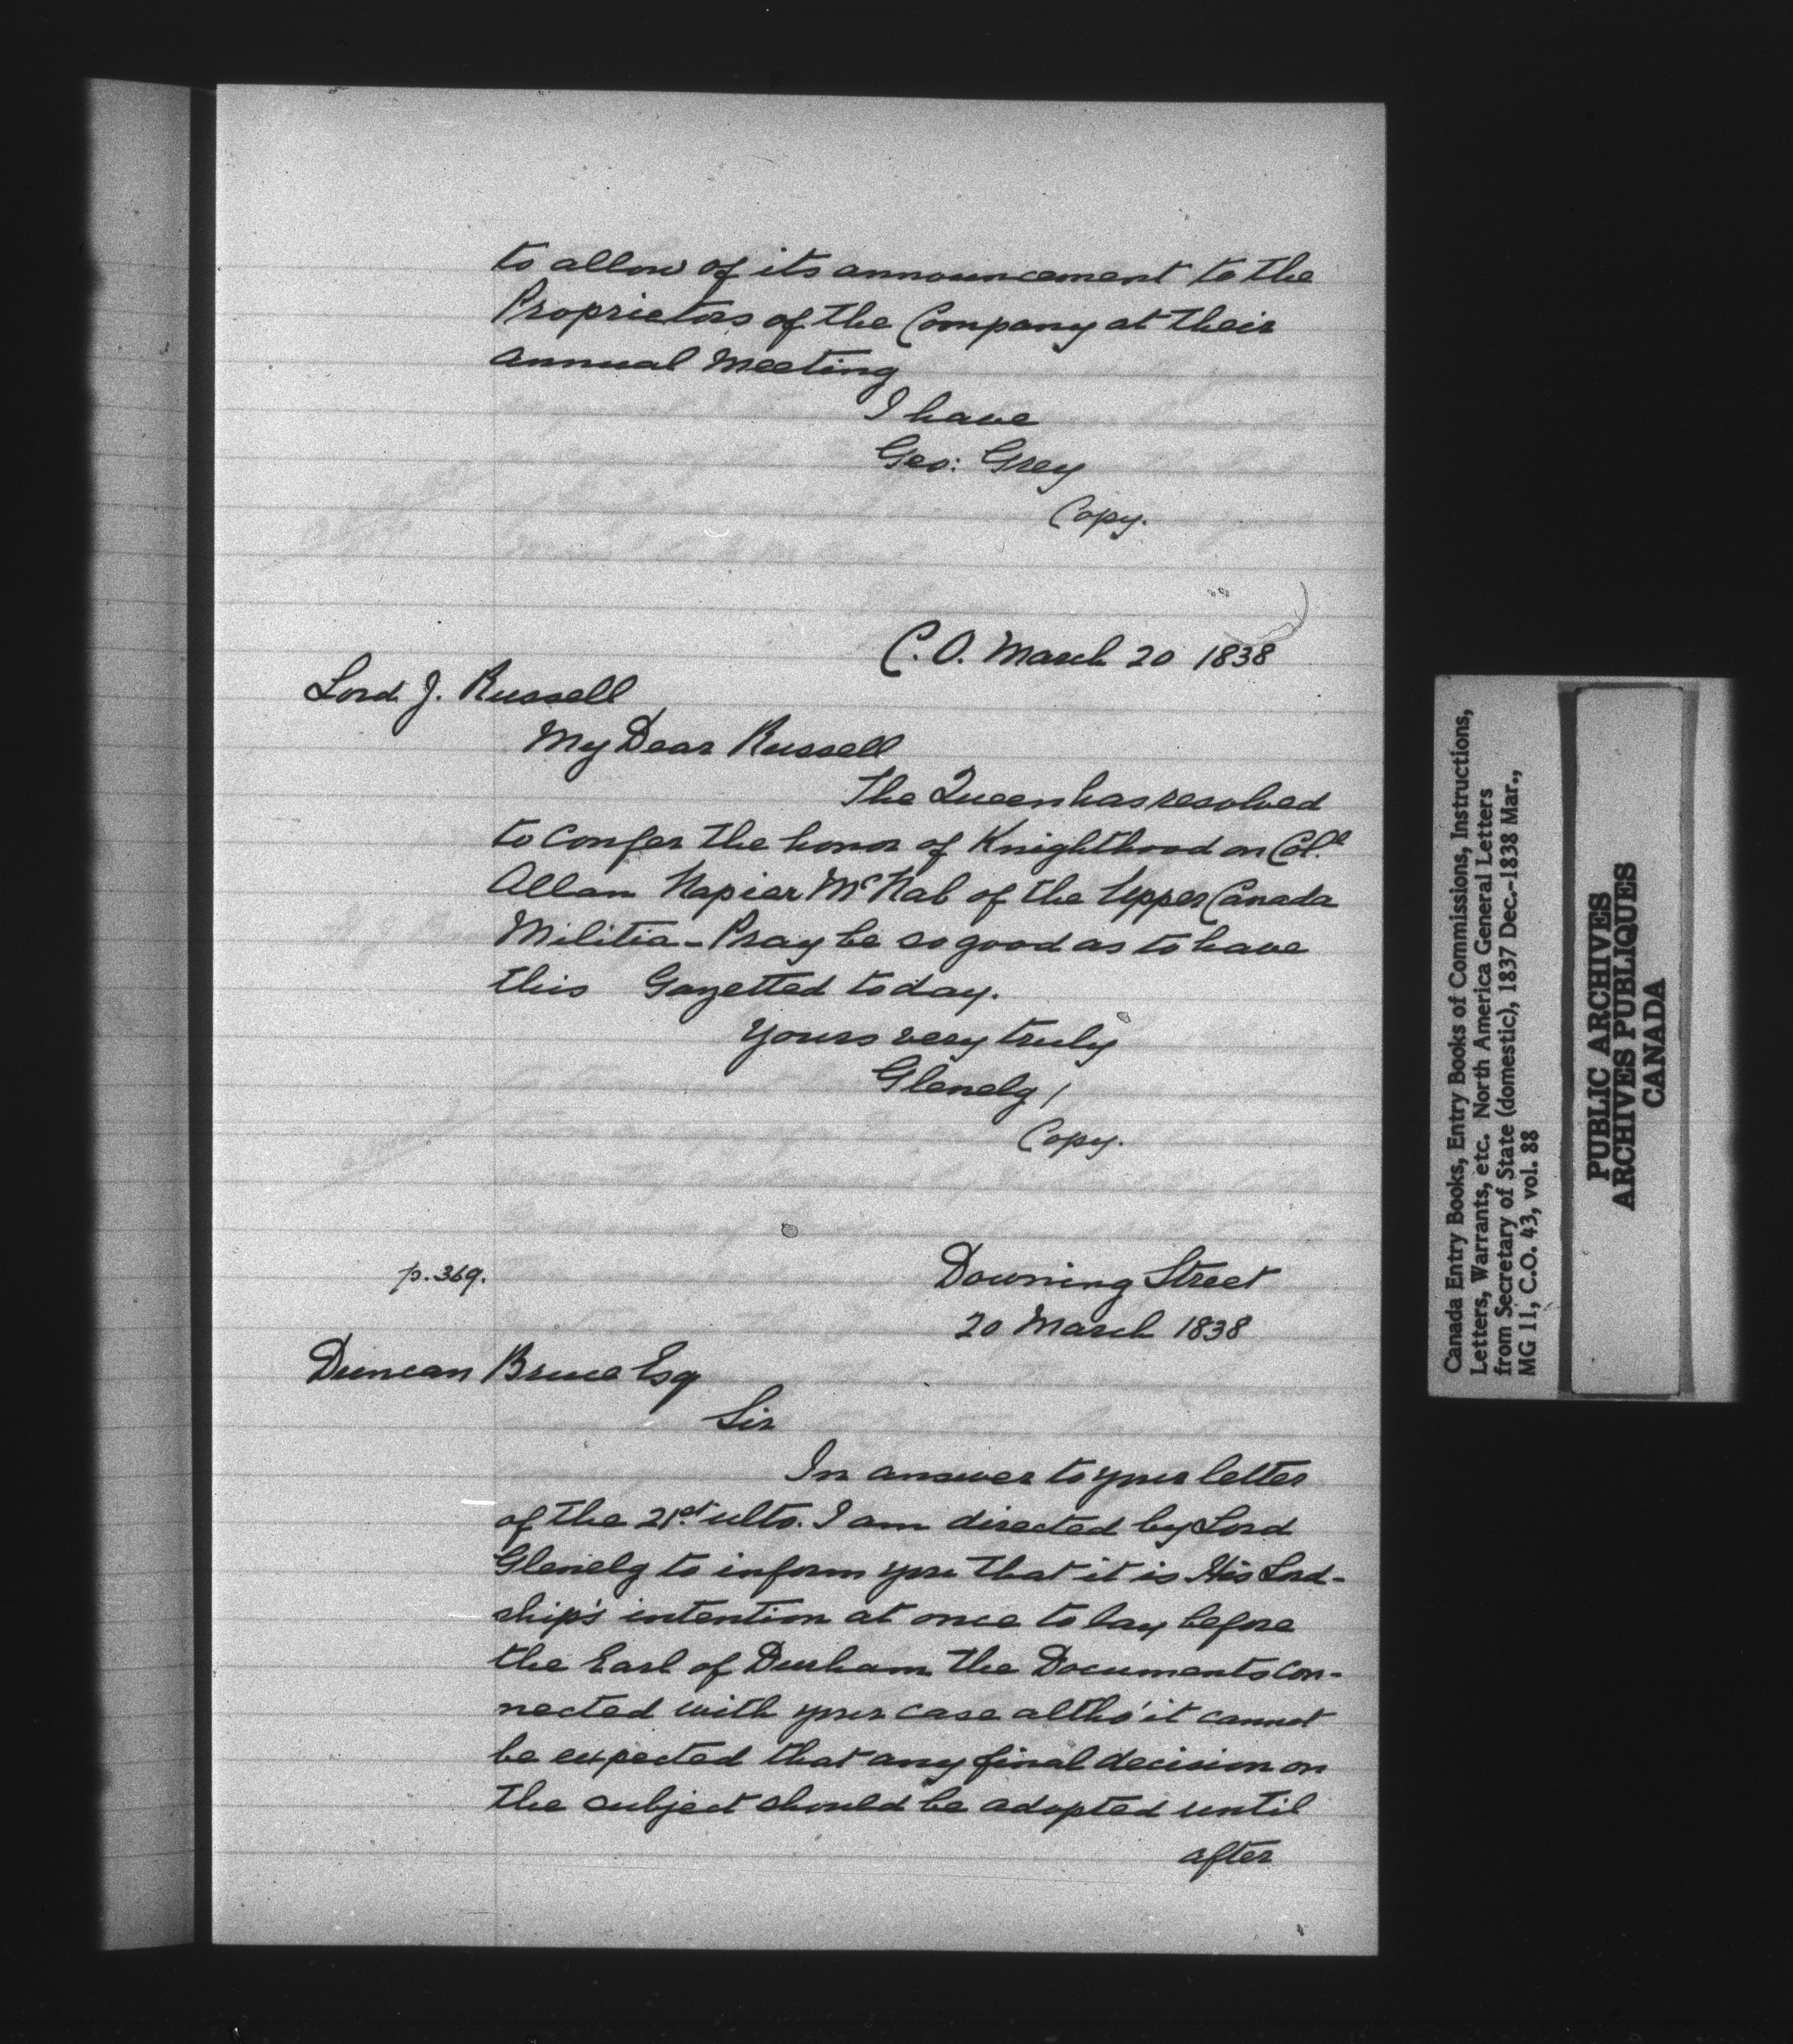 to allow of its announcement to the
Proprietors of the Company at their
annual Meeting
I have
Geo: Grey
Copy.
C.O. March 20 1838
Lord J. Russell
My Dear Russell
The Queen has resolved
to confer the honor of Knighthood on Col.l
Allan Napier McNab of the Upper Canada
Militia - Pray be so good as to have
this Gazetted today.
Yours very truly
Glenelg /
Copy.
p. 369.
Downing Street
20 March 1838
Duncan Bruce Esq
Sir
In answer to your letter
of the 21st ulto. I am directed by Lord
Glenelg to inform you that it is His Lord-
ship's intention at once to lay before
the Earl of Durham the Documents con-
nected with your case altho' it cannot
be expected that any final decision on
the subject should be adopted until
after
Canada Entry Books, Entry Books of Commissions, Instructions,
Letters, Warrants, etc. North America General Letters
from Secretary of State (domestic), 1837 Dec.-1838 Mar.,
MG 11, C.O. 43, vol. 88
PUBLIC ARCHIVES
ARCHIVES PUBLIQUES
CANADA